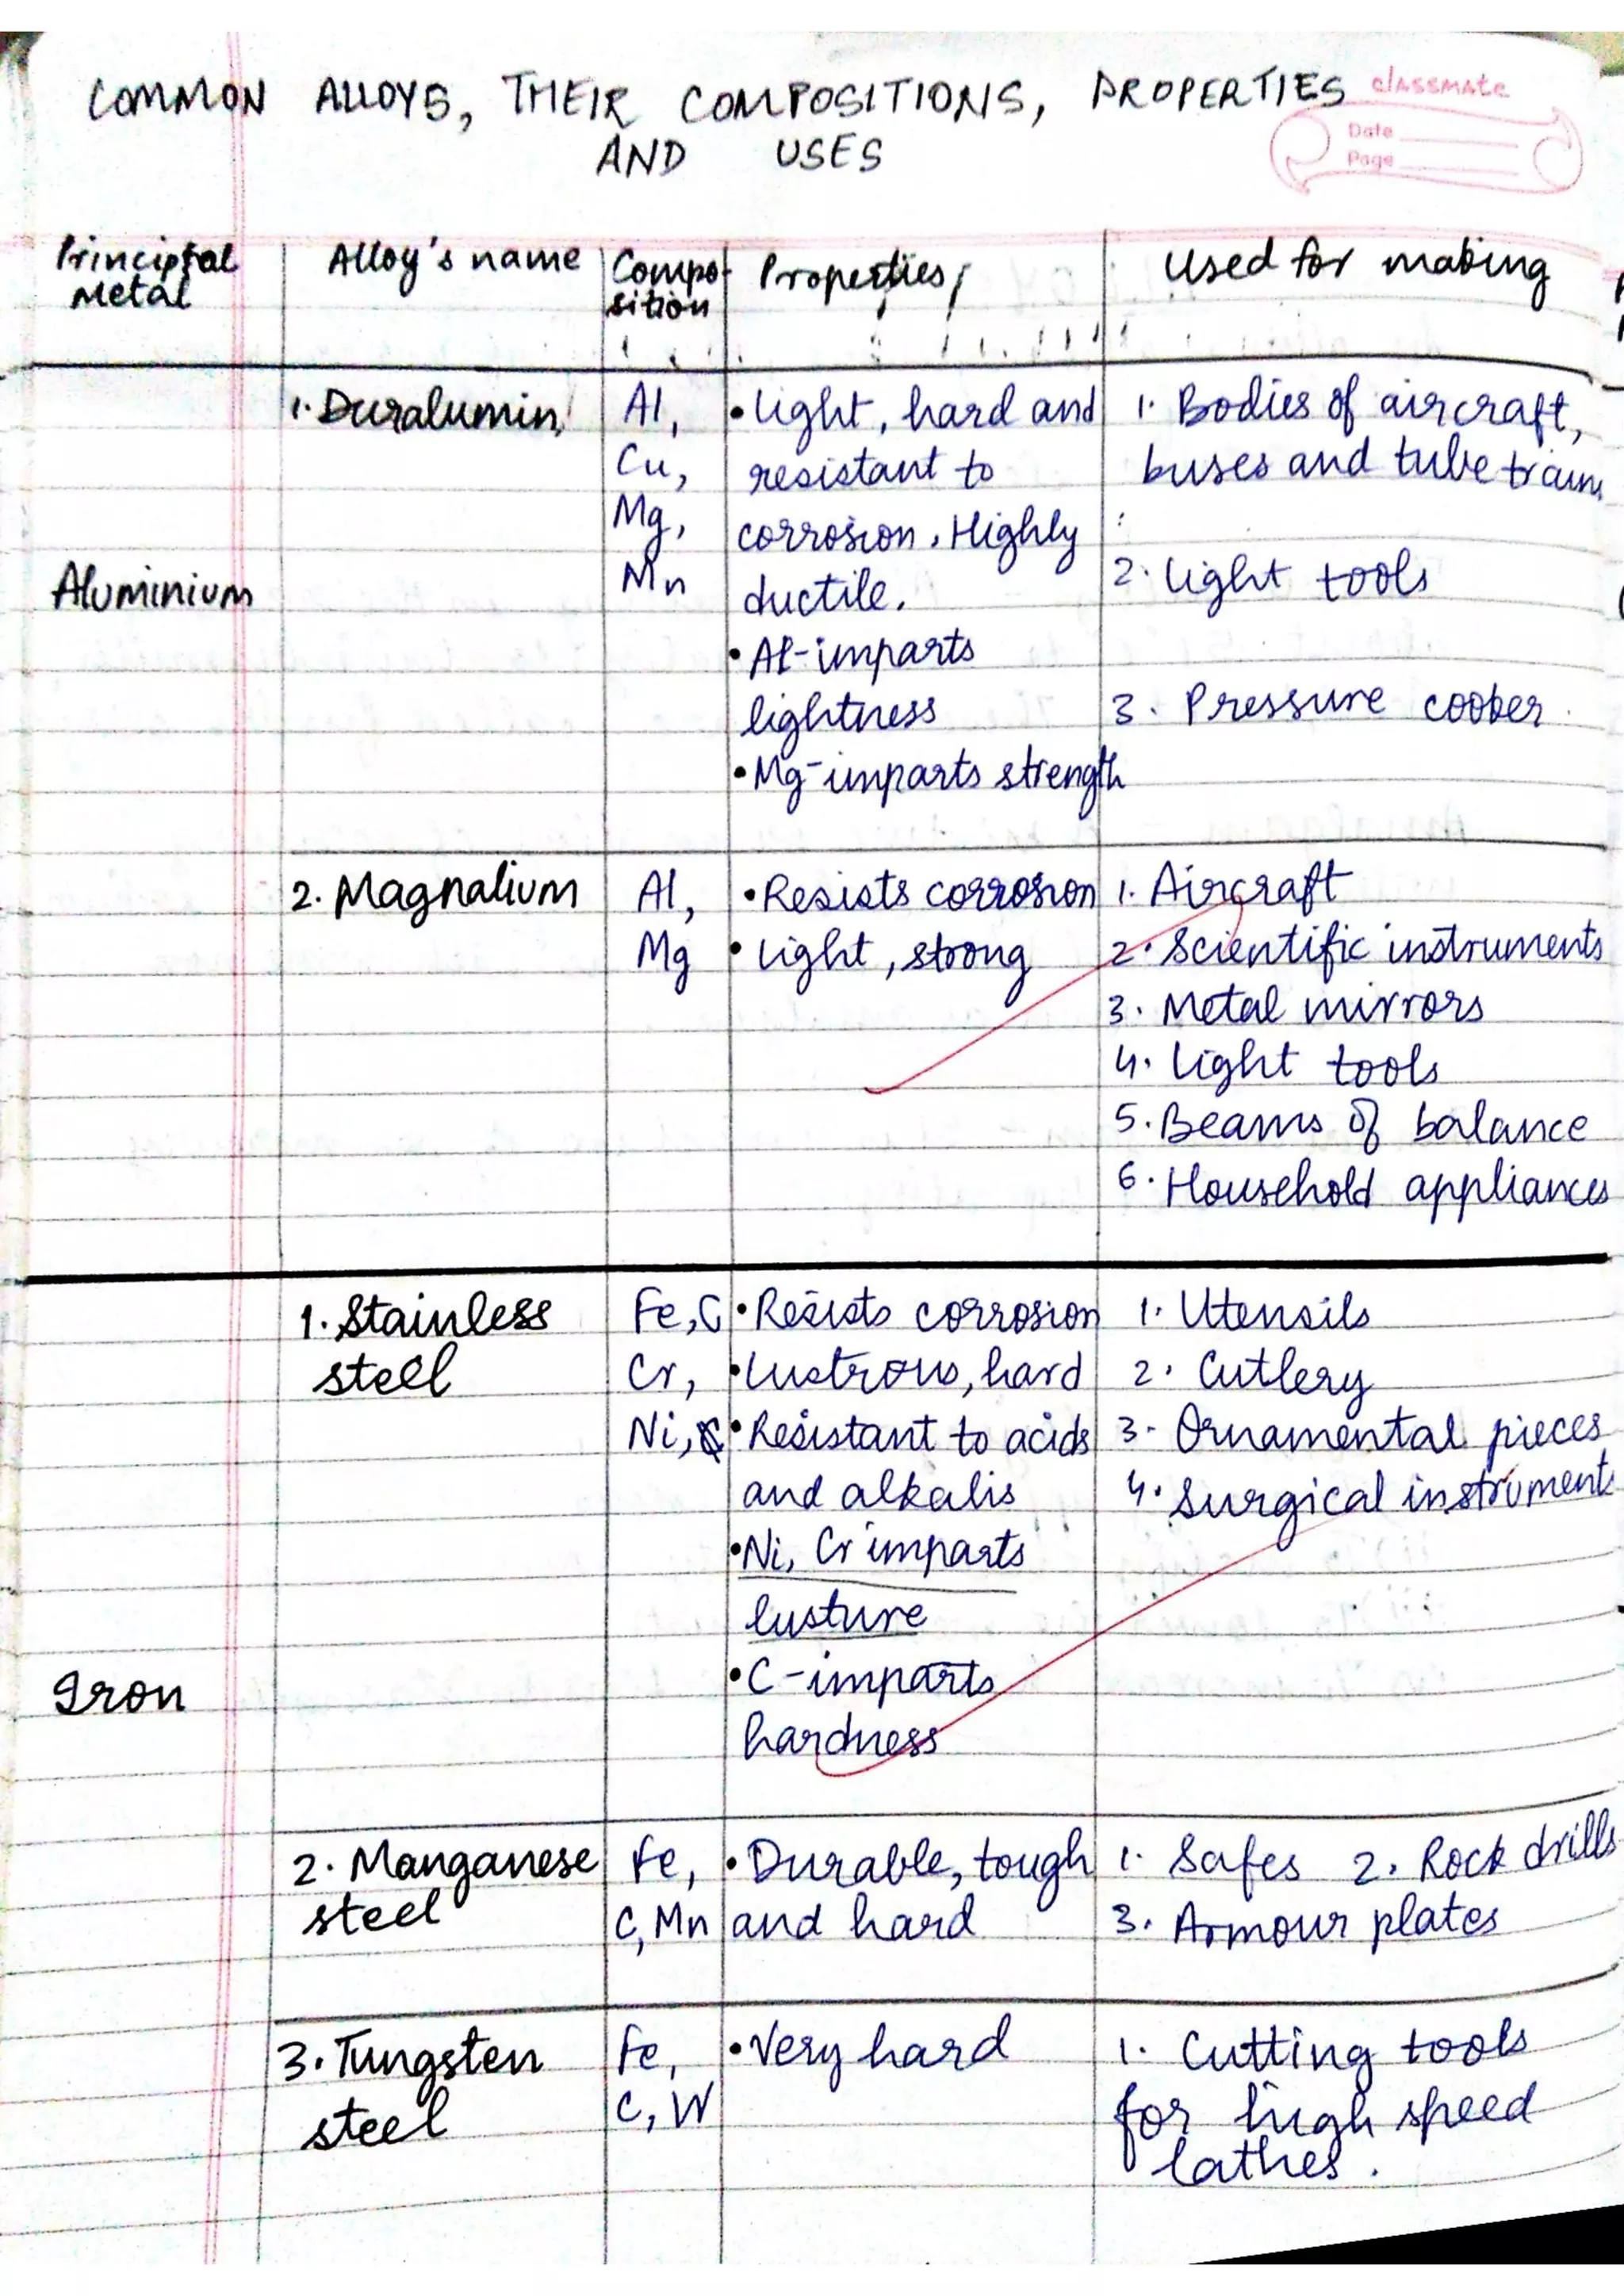 COMMON ALLOYS, THEIR COMPOSITIONS, PROPERTIES
AND USES
classmate
Date
Page
Principal
Metal
Alloy's name
Compo-
sition
Properties
Used for making
Aluminium
1. Duralumin
Al,
Cu,
Mg,
Mn
• Light, hard and
resistant to
corrosion. Highly
ductile.
• Al-imparts
lightness
• Mg-imparts strength
1. Bodies of aircraft,
buses and tube trains
2. Light tools
3. Pressure cooker
2. Magnalium
Al,
Mg
• Resists corrosion
• Light, strong
1. Aircraft
2. Scientific instruments
3. Metal mirrors
4. Light tools
5. Beams of balance
6. Household appliances
Iron
1. Stainless
steel
Fe, C
Cr,
Ni,
• Resists corrosion
• Lustrous, hard
• Resistant to acids
and alkalis
• Ni, Cr imparts
lusture
• C-imparts
hardness
1. Utensils
2. Cutlery
3. Ornamental pieces
4. Surgical instruments
2. Manganese
steel
Fe,
C, Mn
• Durable, tough
and hard
1. Safes 2. Rock drills
3. Armour plates
3. Tungsten
steel
Fe,
C, W
• Very hard
1. Cutting tools
for high speed
lathes.